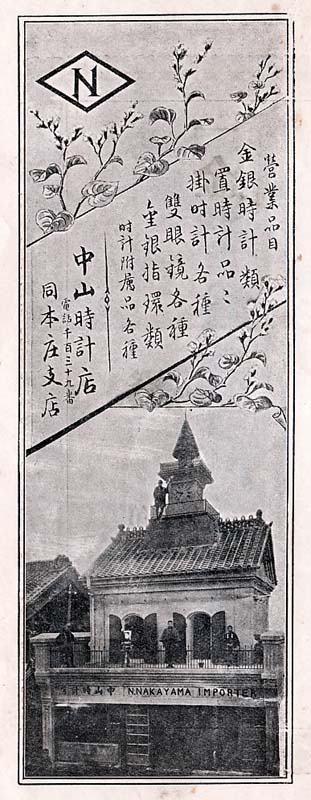 N
營業品目
金銀時計類
置時計品々
掛時計各種
雙眼鏡各種
金銀指環類
時計附属品各種
中山時計店
電話千百三十九番
同本庄支店
中山時計店 N.NAKAYAMA IMPORTER